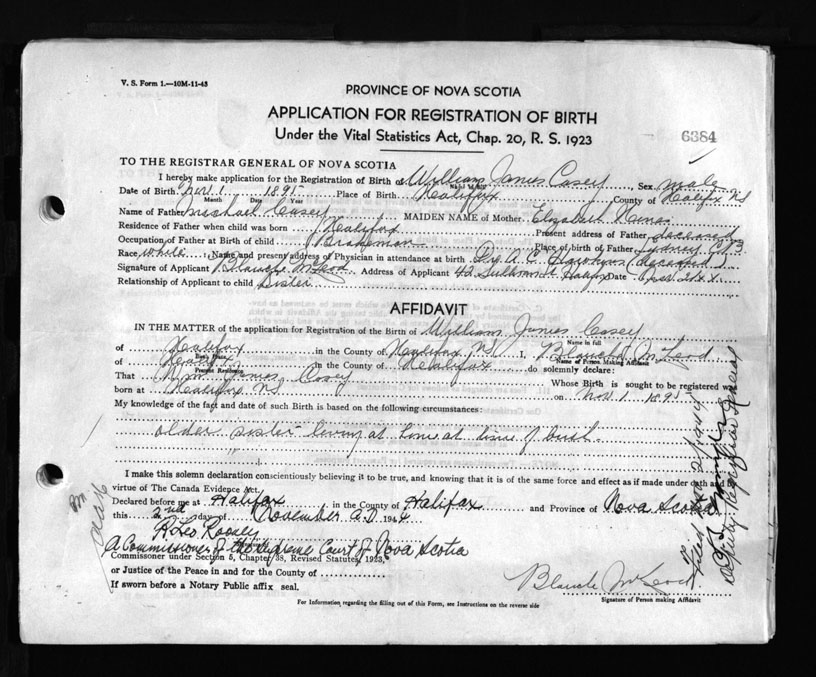 V. S. Form 1.—10M-11-43
PROVINCE OF NOVA SCOTIA
APPLICATION FOR REGISTRATION OF BIRTH
Under the Vital Statistics Act, Chap. 20, R. S. 1923
6384
TO THE REGISTRAR GENERAL OF NOVA SCOTIA
I hereby make application for the Registration of Birth of William James Casey, Sex male
Date of Birth Nov. 1 1895 Place of Birth Halifax County of Halifax NS
Month Date Year
Name of Father Michael Casey MAIDEN NAME of Mother Elizabeth
Residence of Father when child was born Halifax Present address of Father deceased
Occupation of Father at Birth of child Brakeman Place of birth of Father Sydney C.B
Race white Name and present address of Physician in attendance at birth (deceased)
Signature of Applicant Blanche McLeod Address of Applicant 42 Halifax Date
Relationship of Applicant to child Sister
AFFIDAVIT
IN THE MATTER of the application for Registration of the Birth of William James Casey
Name in full
of Halifax in the County of Halifax NS I, Blanche McLeod
Name of Person Making Affidavit
of Halifax in the County of Halifax do solemnly declare:
Present Residence
That Wm James Casey Whose Birth is sought to be registered was
born at Halifax NS on Nov 1 1895
My knowledge of the fact and date of such Birth is based on the following circumstances:
older sister living at home at time of birth.
I make this solemn declaration conscientiously believing it to be true, and knowing that it is of the same force and effect as if made under oath and By
virtue of The Canada Evidence Act
Declared before me at Halifax in the County of Halifax and Province of Nova Scotia
this 2nd day of November A.D. 194
A Commissioner of the Supreme Court of Nova Scotia
Commissioner under Section 5, Chapter 38, Revised Statutes, 1923,
or Justice of the Peace in and for the County of
If sworn before a Notary Public affix seal.
Blanche McLeod
Signature of Person making Affidavit
For Information regarding the filling out of this Form, see Instructions on the reverse side
Deputy Registrar General